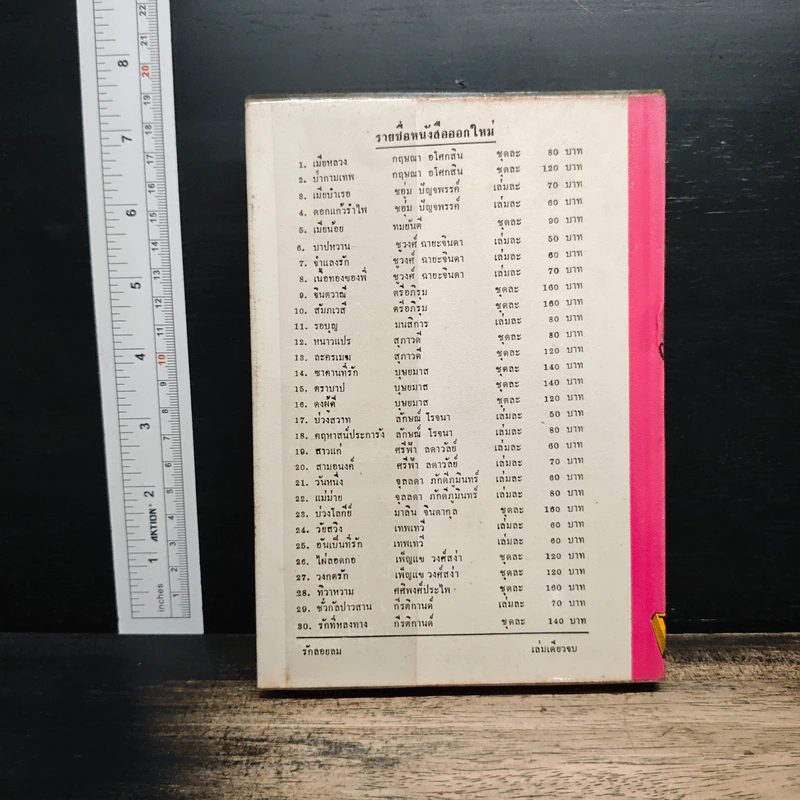 รายชื่อหนังสือออกใหม่
1. เมียหลวง กฤษณา อโศกสิน ชุดละ 80 บาท
2. น้ำกามเทพ กฤษณา อโศกสิน ชุดละ 120 บาท
3. เมียบำเรอ ชอุ่ม ปัญจพรรค์ เล่มละ 70 บาท
4. ดอกแก้วรำไพ ชอุ่ม ปัญจพรรค์ เล่มละ 60 บาท
5. เมียน้อย ทมยันตี ชุดละ 90 บาท
6. บาปหวาน ชูวงศ์ ฉายะจินดา เล่มละ 50 บาท
7. จำแลงรัก ชูวงศ์ ฉายะจินดา เล่มละ 60 บาท
8. เนื้อทองของพี่ ชูวงศ์ ฉายะจินดา เล่มละ 70 บาท
9. จินตวาณี ตรีอภิรุม ชุดละ 160 บาท
10. สัมภเวสี ตรีอภิรุม ชุดละ 160 บาท
11. รอบุญ มนสิการ เล่มละ 80 บาท
12. หนาวแปร สุภาวดี ชุดละ 80 บาท
13. ละครเมฆ สุภาวดี ชุดละ 120 บาท
14. ซาตานที่รัก บุษยมาส ชุดละ 140 บาท
15. ตราบาป บุษยมาส ชุดละ 140 บาท
16. ดงผู้ดี บุษยมาส ชุดละ 120 บาท
17. บ่วงสวาท ลักษณ์ โรจนา เล่มละ 50 บาท
18. คฤหาสน์ประการัง ลักษณ์ โรจนา เล่มละ 80 บาท
19. สาวแก่ ศรีฟ้า ลดาวัลย์ เล่มละ 60 บาท
20. สามอนงค์ ศรีฟ้า ลดาวัลย์ เล่มละ 70 บาท
21. วันหนึ่ง จุลลดา ภักดีภูมินทร์ เล่มละ 60 บาท
22. แม่ม่าย จุลลดา ภักดีภูมินทร์ เล่มละ 80 บาท
23. บ่วงโลกีย์ มาลิน จินดากุล ชุดละ 160 บาท
24. วัยสวิง เทพเทวี เล่มละ 60 บาท
25. อันเป็นที่รัก เทพเทวี เล่มละ 60 บาท
26. ไผ่ลอดกอ เพ็ญแข วงศ์สง่า ชุดละ 120 บาท
27. วงกตรัก เพ็ญแข วงศ์สง่า ชุดละ 120 บาท
28. ทิวาหวาม ศศิพงศ์ประไพ ชุดละ 160 บาท
29. ชั่วกัลปาวสาน กีรติกานต์ เล่มละ 70 บาท
30. รักที่หลงทาง กีรติกานต์ ชุดละ 140 บาท
รักลอยลม เล่มเดียวจบ
8 7 6 5 4 3 2 1 inches
AKTION
22 21 20 19 18 17 16 15 14 13 12 11 10 9 8 7 6 5 4 3 2 1